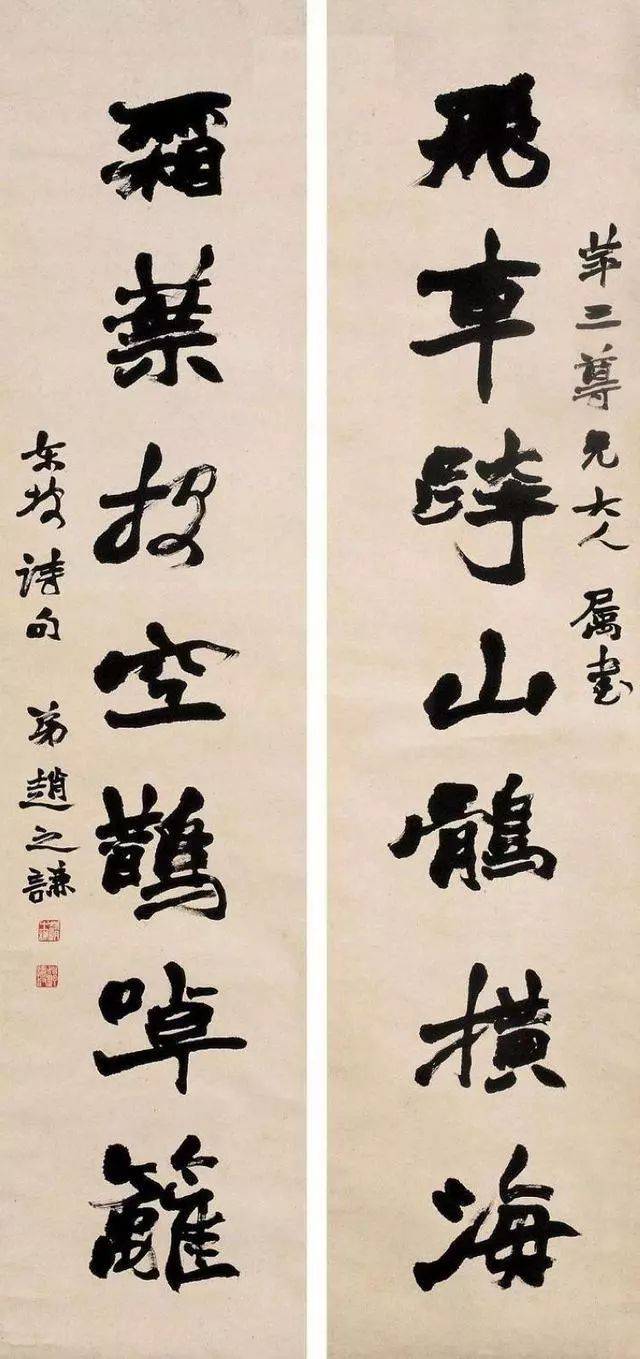 三尊兄大人 屬書
飛車跨山鶻橫海
霜葉投空鵲啅籬
東坡詩句 弟趙之謙